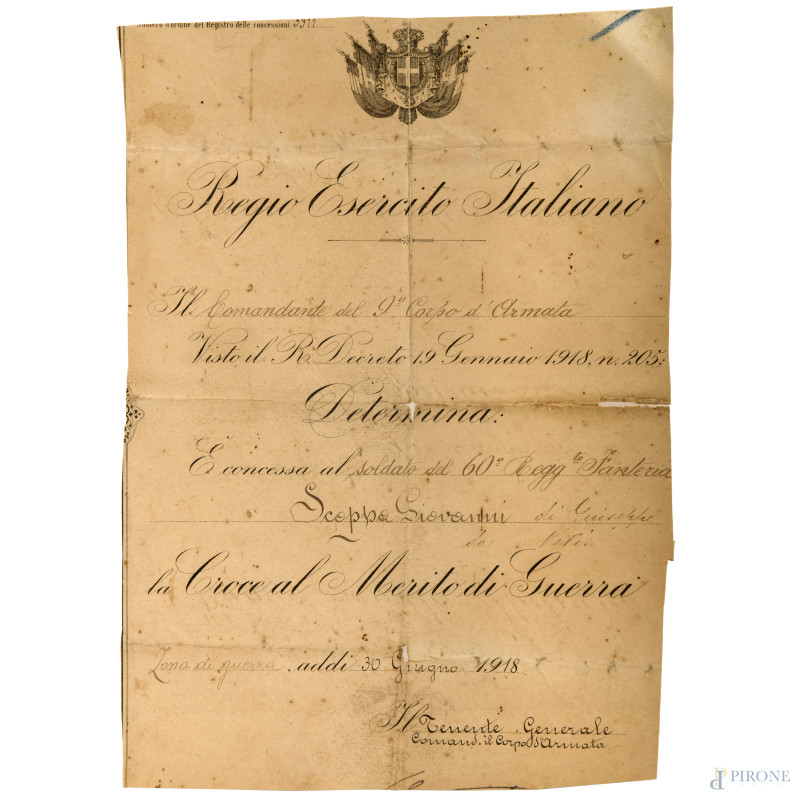 Numero d'ordine del Registro delle concessioni 3311
Regio Esercito Italiano
Il Comandante del 9º Corpo d'Armata
Visto il R. Decreto 19 Gennaio 1918, n. 205;
Determina:
È concessa al soldato del 60º Regg.to Fanteria
Scoppa Giovanni di Giuseppe
da
la Croce al Merito di Guerra
Zona di guerra, addì 30 Giugno 1918
Il Tenente Generale
Comand. il Corpo d'Armata
PIRONE